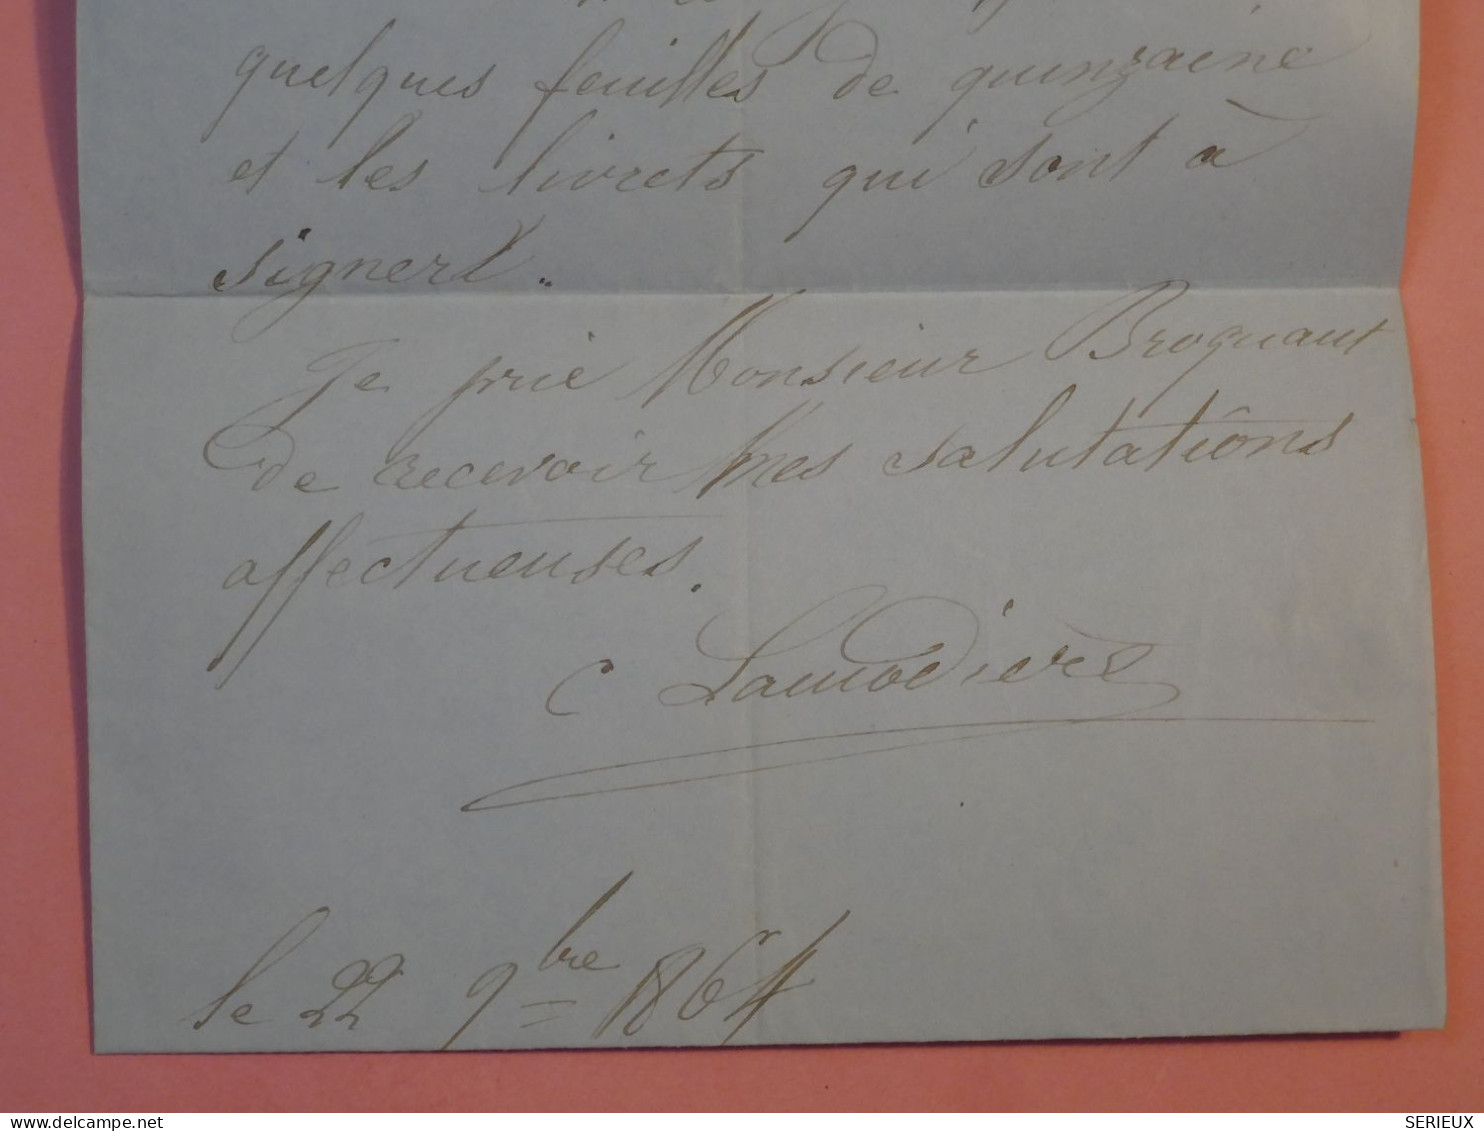 quelques feuilles de quinzaine
et les livrets qui sont à
signerd.
Je prie Monsieur Broquant
de recevoir mes salutations
affectueuses.
C Lamodière
le 22 9bre 1864
delcampe.net
SERIEUX